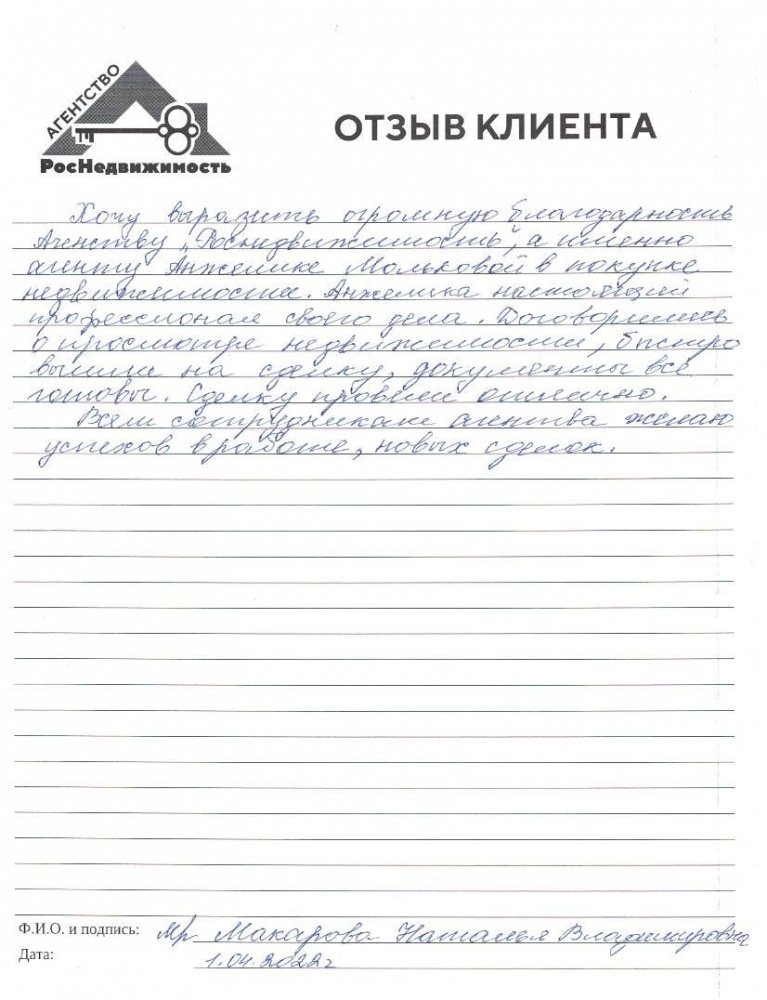 АГЕНТСТВО
РосНедвижимость
ОТЗЫВ КЛИЕНТА
Хочу выразить огромную благодарность
Агенству „Роснидвижимость", а именно
агенту Анжелике Мольковой в покупке
недвижимости. Анжелика настоящий
профессионал своего дела. Договорились
о просмотре недвижимости, быстро
вышли на сделку, документы все
готовы. Сделку провели отлично.
Всем сотрудникам агенства желаю
успехов в работе, новых сделок.
Ф.И.О. и подпись: Мр Макарова Наталья Владимировна
Дата: 1.04.2022г